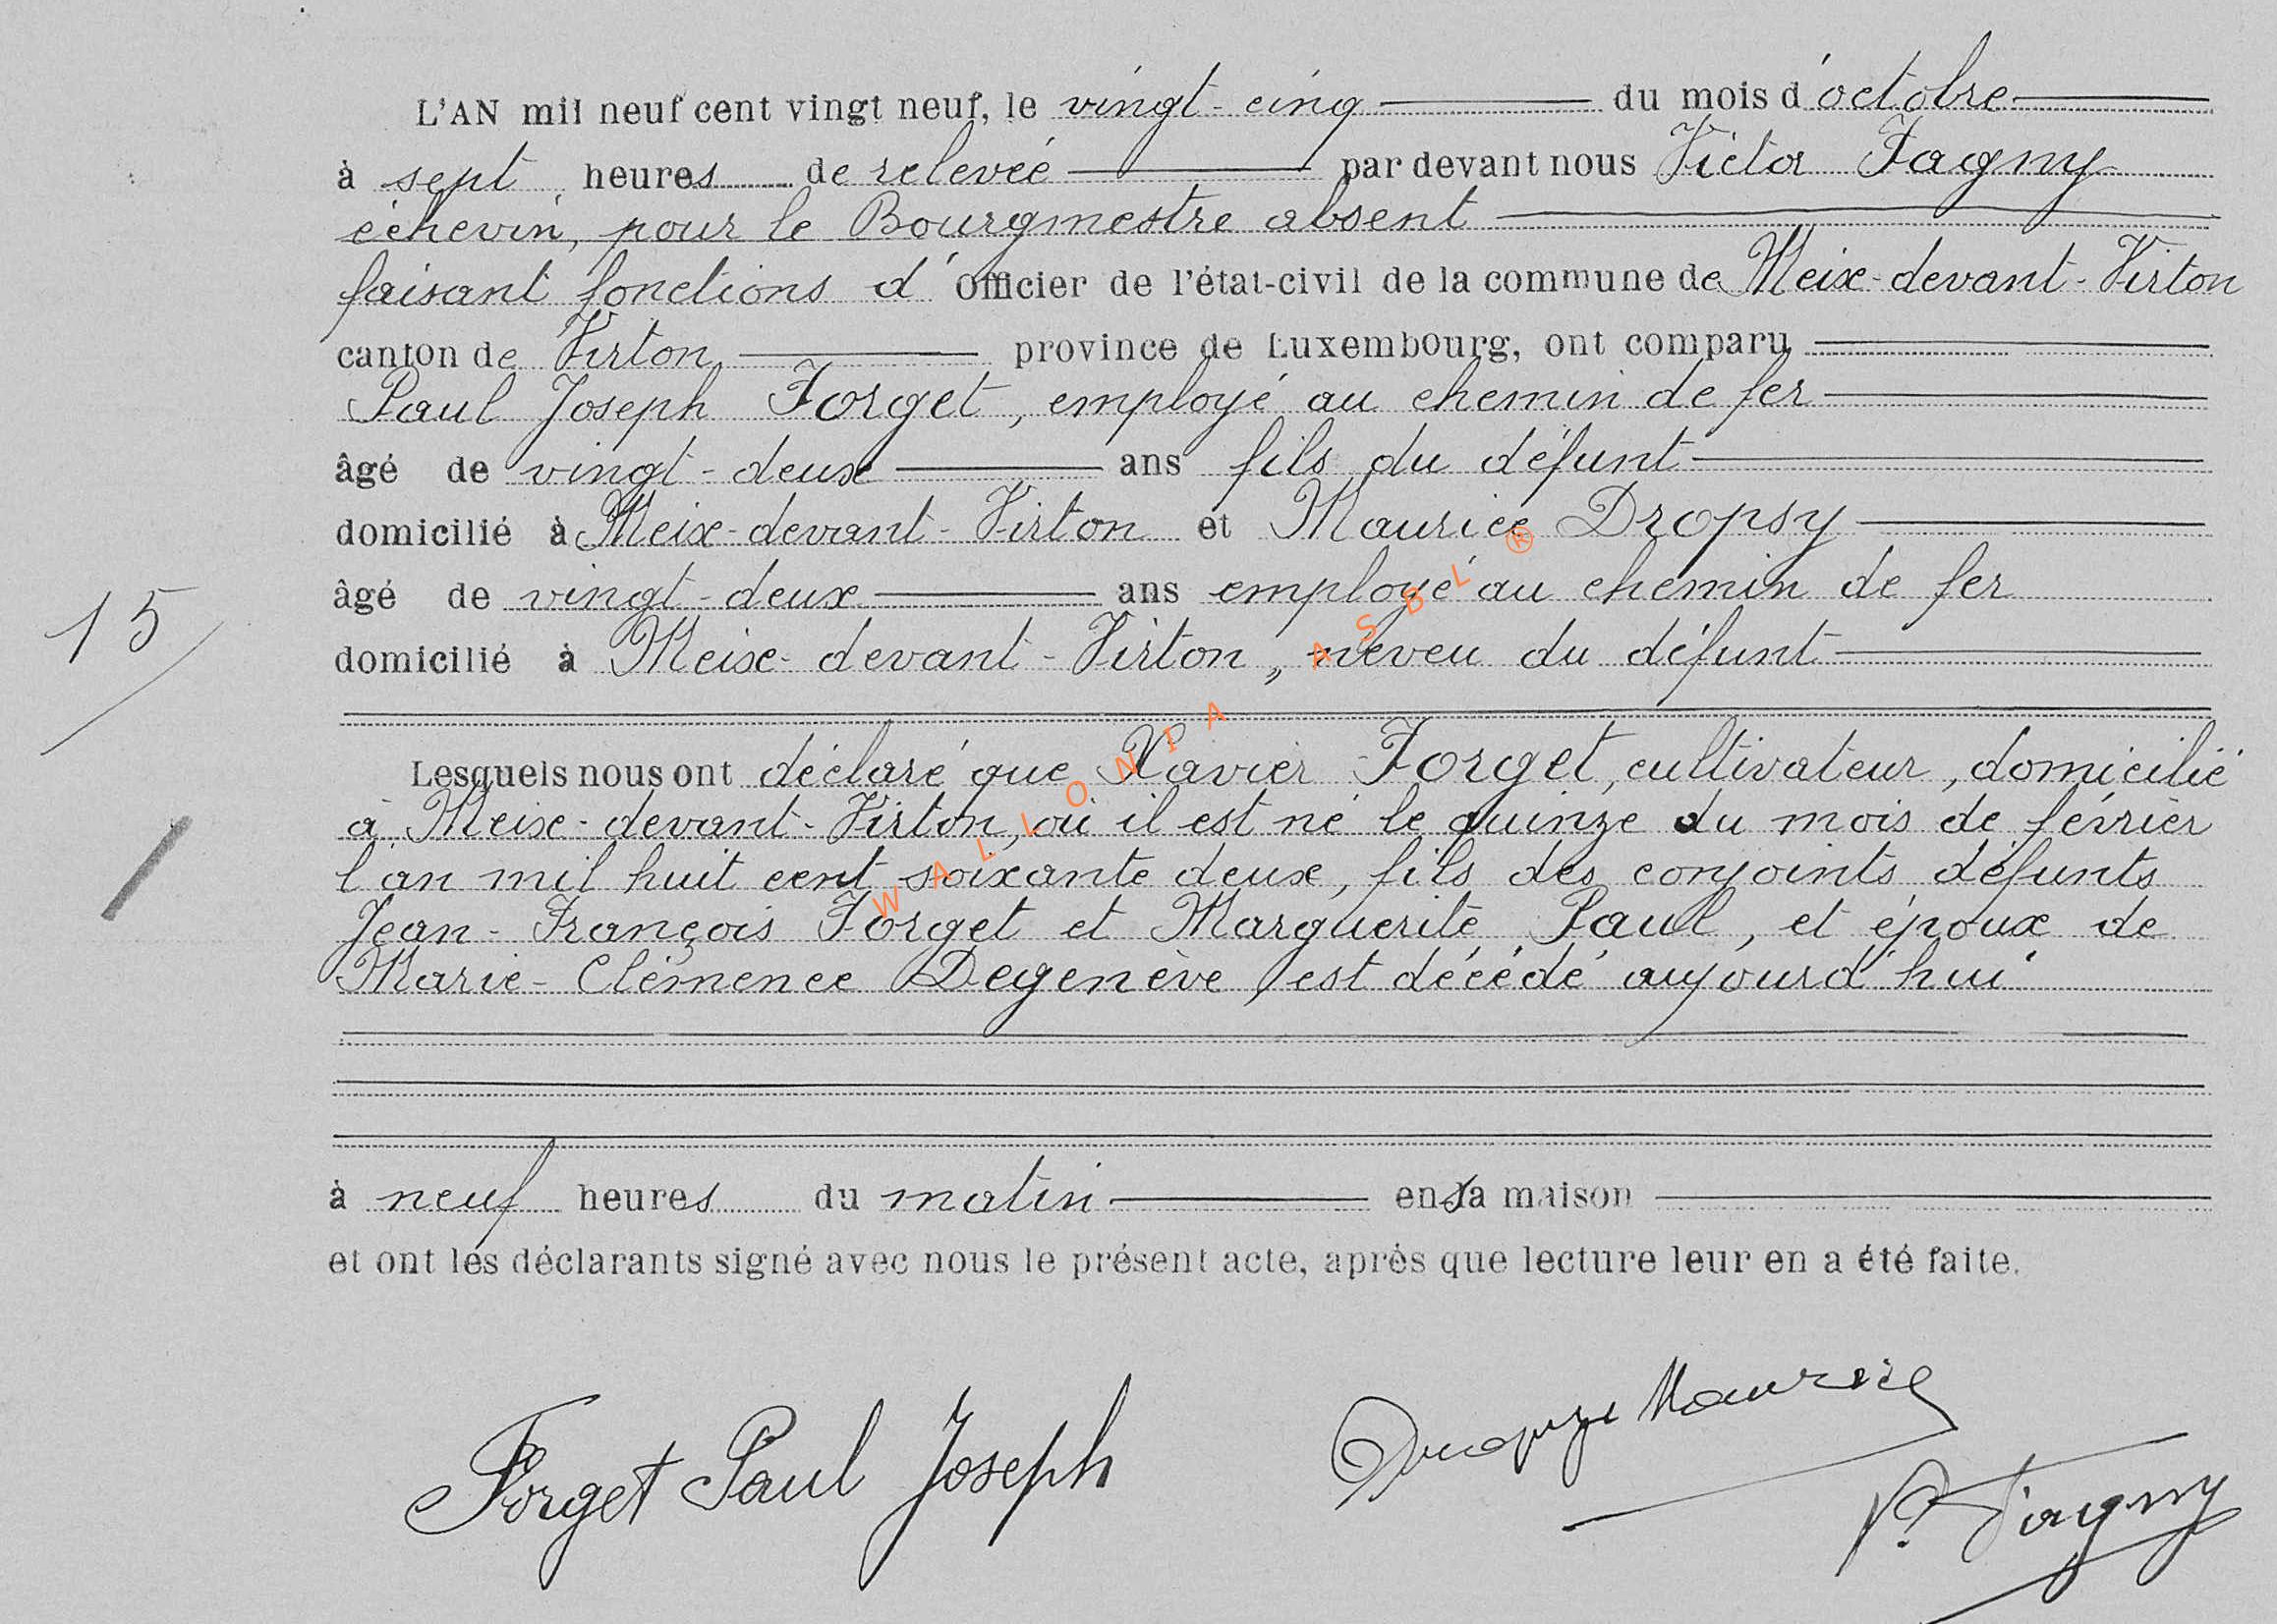 L'AN mil neuf cent vingt neuf, le vingt-cinq du mois d'octobre
à sept heures de relevée par devant nous Victor Fagny
échevin, pour le Bourgmestre absent
faisant fonctions d'Officier de l'état-civil de la commune de Meix-devant-Virton
canton de Virton province de Luxembourg, ont comparu
Paul Joseph Forget, employé au chemin de fer
âgé de vingt-deux ans fils du défunt
domicilié à Meix-devant-Virton et Maurice Dropsy
âgé de vingt-deux ans employé au chemin de fer
15
domicilié à Meix-devant-Virton, neveu du défunt
Lesquels nous ont déclaré que Xavier Forget, cultivateur, domicilié
à Meix-devant-Virton, où il est né le quinze du mois de février
l'an mil huit cent soixante deux, fils des conjoints défunts
Jean-François Forget et Marguerite Paul, et époux de
Marie-Clémence Degenève, est décédé aujourd'hui
à neuf heures du matin en sa maison
et ont les déclarants signé avec nous le présent acte, après que lecture leur en a été faite.
Forget Paul Joseph
Dropsy Maurice
V. Fagny
WALLONIA ASBL ®